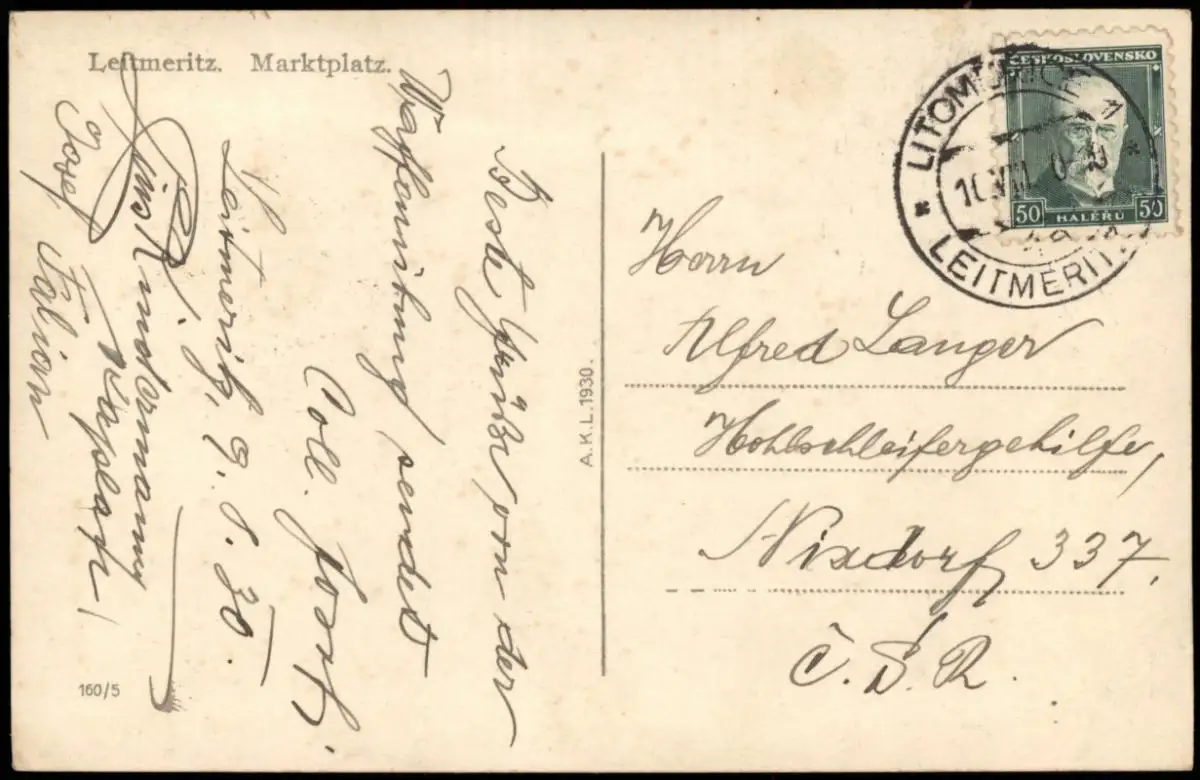 Leitmeritz. Marktplatz.
Beste Grüße von der
Waffenübung sendet
Coll. Josef
Leitmeritz, 9. 8. 30.
Josef
Fabian
160/5
A.K.L.1930.
ČESKOSLOVENSKO
50 HALÉŘŮ 50
LITOMĚŘICE
10.VIII. 0-20
* LEITMERITZ *
Herrn
Alfred Langer
Hohlschleifergehilfe,
Nixdorf 337.
Č.S.R.